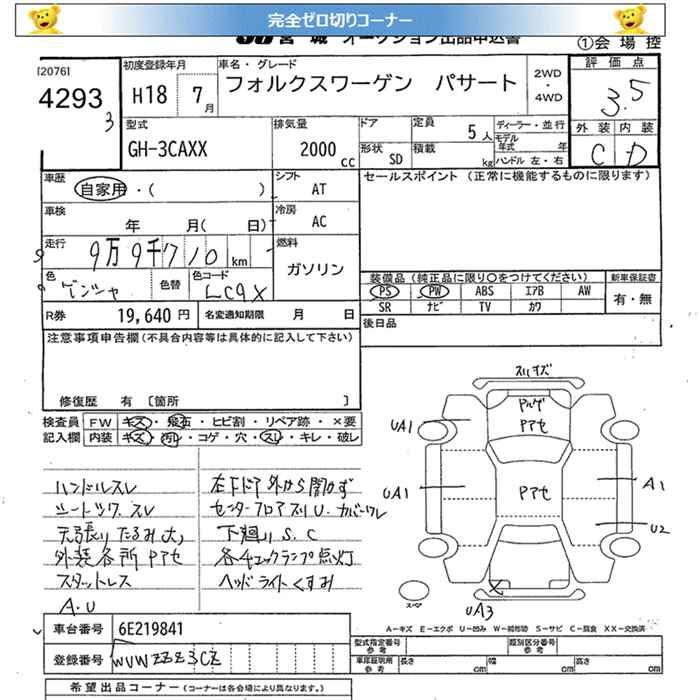 完全ゼロ切りコーナー
JU 宮 城 オークション出品申込書
①会 場 控
[2076]
4293
3
初度登録年月
H18 7月
車名・グレード
フォルクスワーゲン パサート
2WD
・
4WD
評 価 点
3.5
外 装 内 装
C D
型式
GH-3CAXX
排気量
2000 cc
ドア
形状 SD
定員 5人
積載 kg
ディーラー・並行
モデル年式 年
ハンドル 左・右
車歴
自家用・( )
シフト
AT
セールスポイント (正常に機能するものに限ります)
車検
年 月( 日)
冷房
AC
走行
9万9千710 km
燃料
ガソリン
色
ゲンシャ
色替
色コード
LC9X
装備品 (純正品に限り○をつけてください)
新車保証書
PS PW ABS エアB AW
有・無
SR ナビ TV カワ
R券 19,640 円
名変通知期限 月 日
後日品
注意事項申告欄 (不具合内容等は具体的に記入して下さい)
修復歴 有 [箇所 ]
検査員 FW キズ・飛石・ヒビ割・リペア跡・×要
記入欄 内装 キズ・汚れ・コゲ・穴・スレ・キレ・破レ
ハンドルスレ
シートツカ スレ
天張り たるみ 大
外装各所 Pアセ
スタットレス
A.U
左下ドア外から開かず
センターフロアスリU.カバーワレ
下廻り S.C
各チェックランプ点灯
ヘッドライトくすみ
スリキズ
Pアセ
UA1
UA1
Pアセ
A1
U2
X
UA3
スペア
A-キズ E-エクボ U-凹み W-補修跡 S-サビ C-腐食 XX-交換済
車台番号 6E219841
登録番号 WVWZZZ3CZ
型式指定番号 参考
類別区分番号 参考
車庫証明用 参考 長さ cm 幅 cm 高さ cm
希望出品コーナー (コーナーは各会場により異なります。)